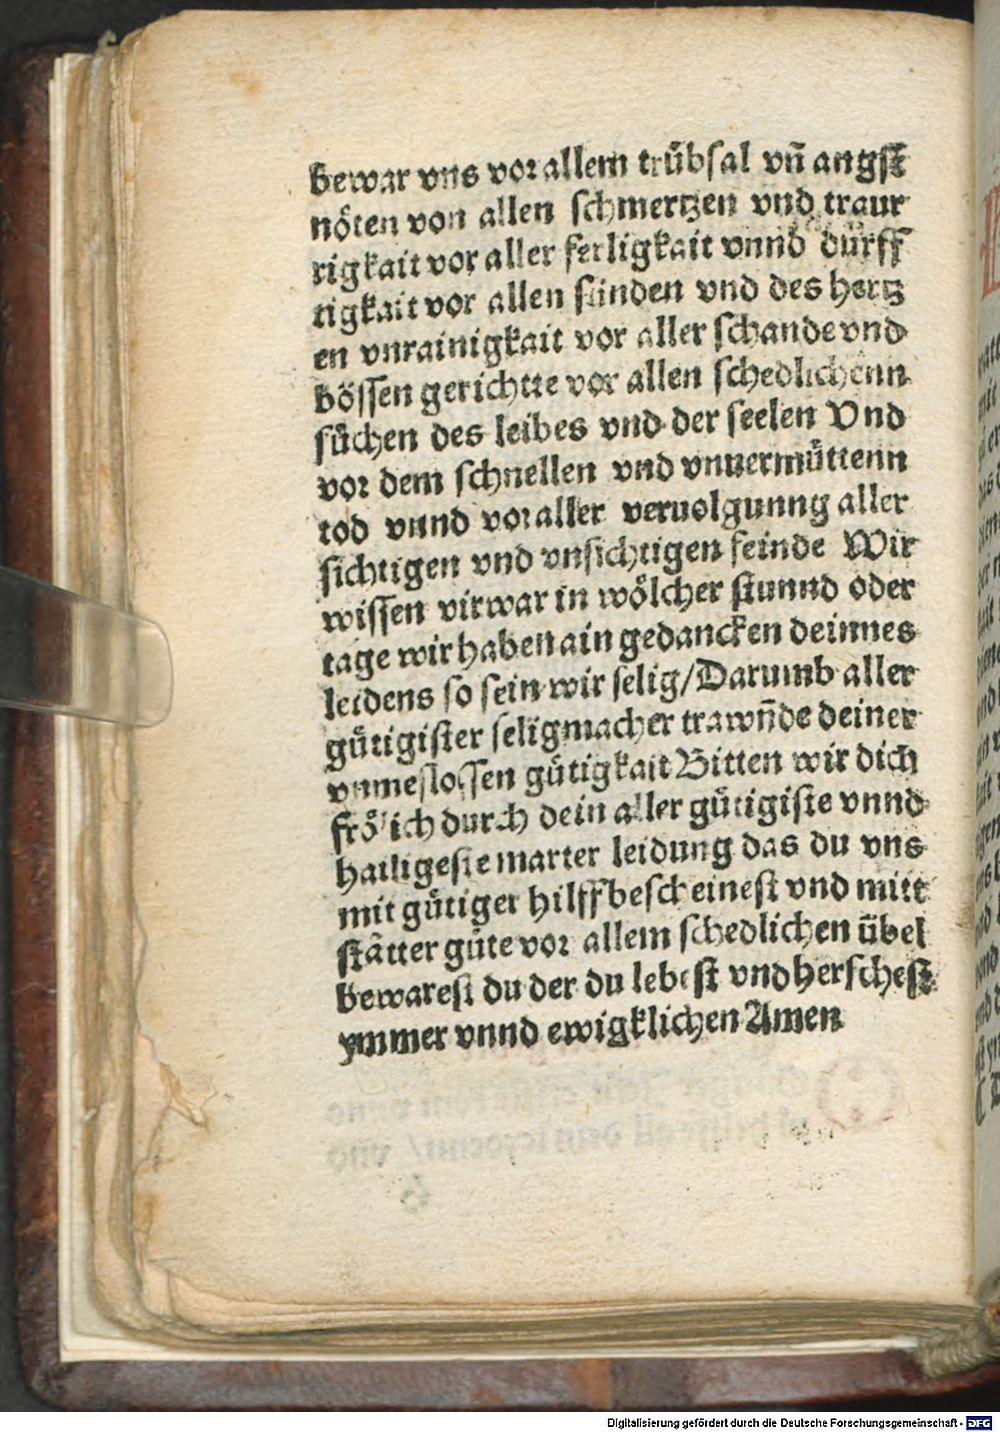 bewar vns vor allem trübsal vñ angst
nöten von allen schmertzen vnd traur
rigkait vor aller ferligkait vnnd dürff
tigkait vor allen sünden vnd des hertz
en vnrainigkait vor aller schande vnd
bössen gerichtte vor allen schedlichenn
süchen des leibes vnd der seelen Vnd
vor dem schnellen vnd vnuermüttenn
tod vnnd vor aller veruolgunng aller
sichtigen vnd vnsichtigen feinde Wir
wissen virwar in wölcher stunnd oder
tage wir haben ain gedancken deinnes
leidens so sein wir selig/Darumb aller
gütigister seligmacher trawñde deiner
vnmeslossen gütigkait Bitten wir dich
frölich durch dein aller gütigiste vnnd
hailigeste marter leidung das du vns
mit gütiger hilff bescheinest vnd mitt
stätter güte vor allem schedlichen übel
bewarest du der du lebest vnd herschest
ymmer vnnd ewigklichen Amen
Digitalisierung gefördert durch die Deutsche Forschungsgemeinschaft - DFG